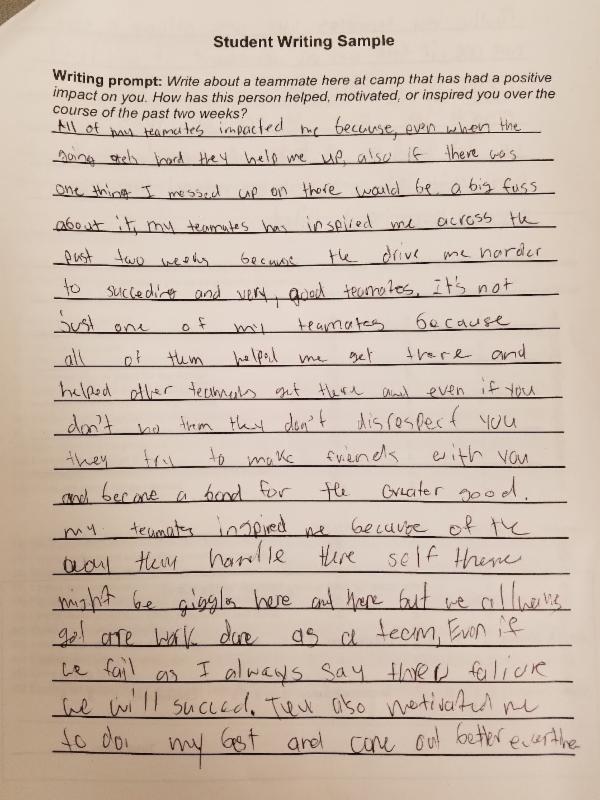 Student Writing Sample
Writing prompt: Write about a teammate here at camp that has had a positive
impact on you. How has this person helped, motivated, or inspired you over the
course of the past two weeks?
All of my teamates impacted me because, even when the
going hard they help me up, also if there was
one thing I messed up on there would be a big fuss
about it, my teamates has inspired me across the
past two weeks because the drive me harder
to succeding and very, good teamates. It's not
just one of my teamates because
all of them helped me get there and
helped other teamates get there and even if you
don't no them they don't disrespect you
they try to make friends with you
and become a bond for the Greater good.
my teamates inspired me because of the
way they handle there self there
might be giggles here and there but we allways
get are work done as a team, Even if
we fail as I always say threw faliure
we will succed. They also motivated me
to do my best and come out better everytime